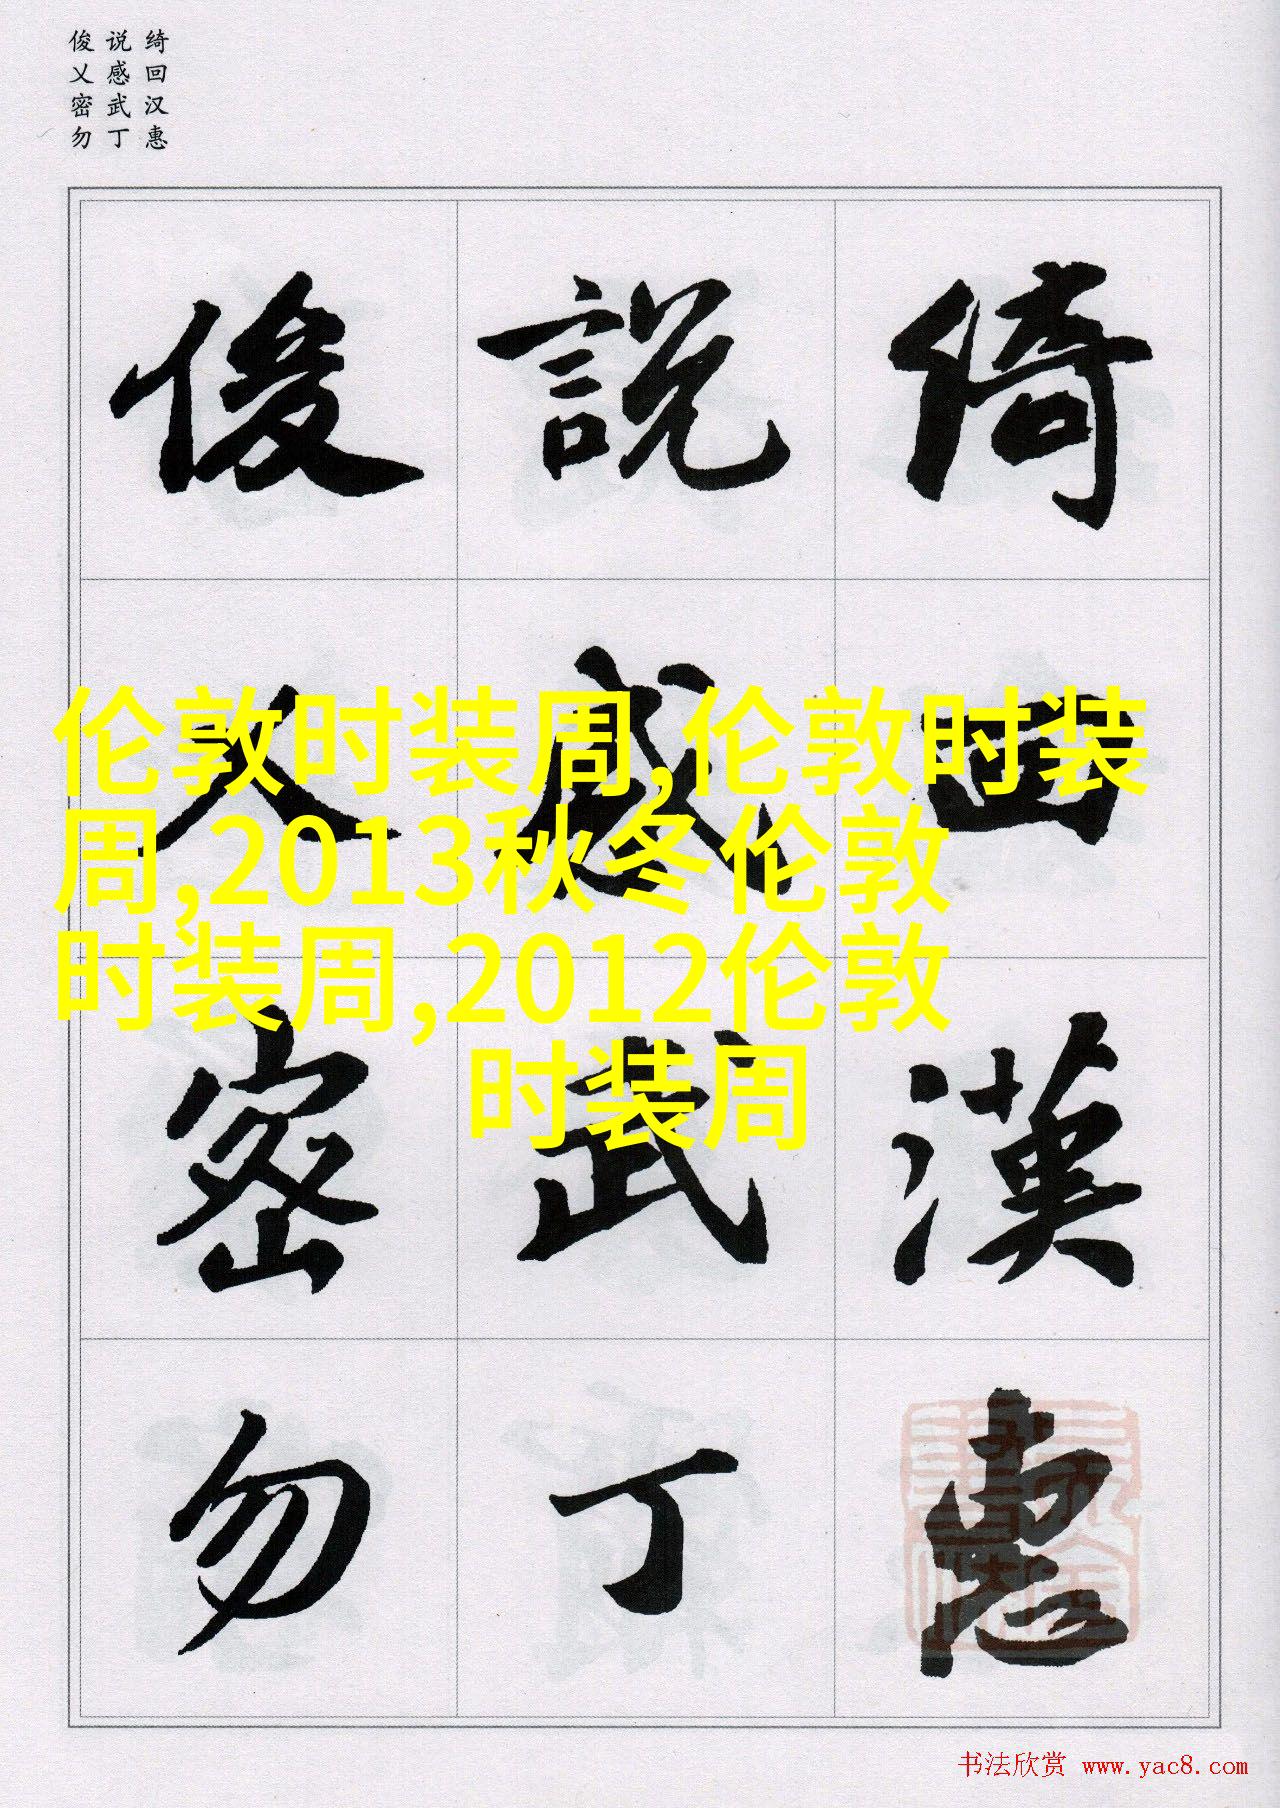 俊说绮
乂感回
密武汉
勿丁惠
俊說綺
乂感回
密武漢
勿丁惠
伦敦时装周,伦敦时装
周,2013秋冬伦敦
时装周,2012伦敦
时装周
书法欣赏 www.yac8.com